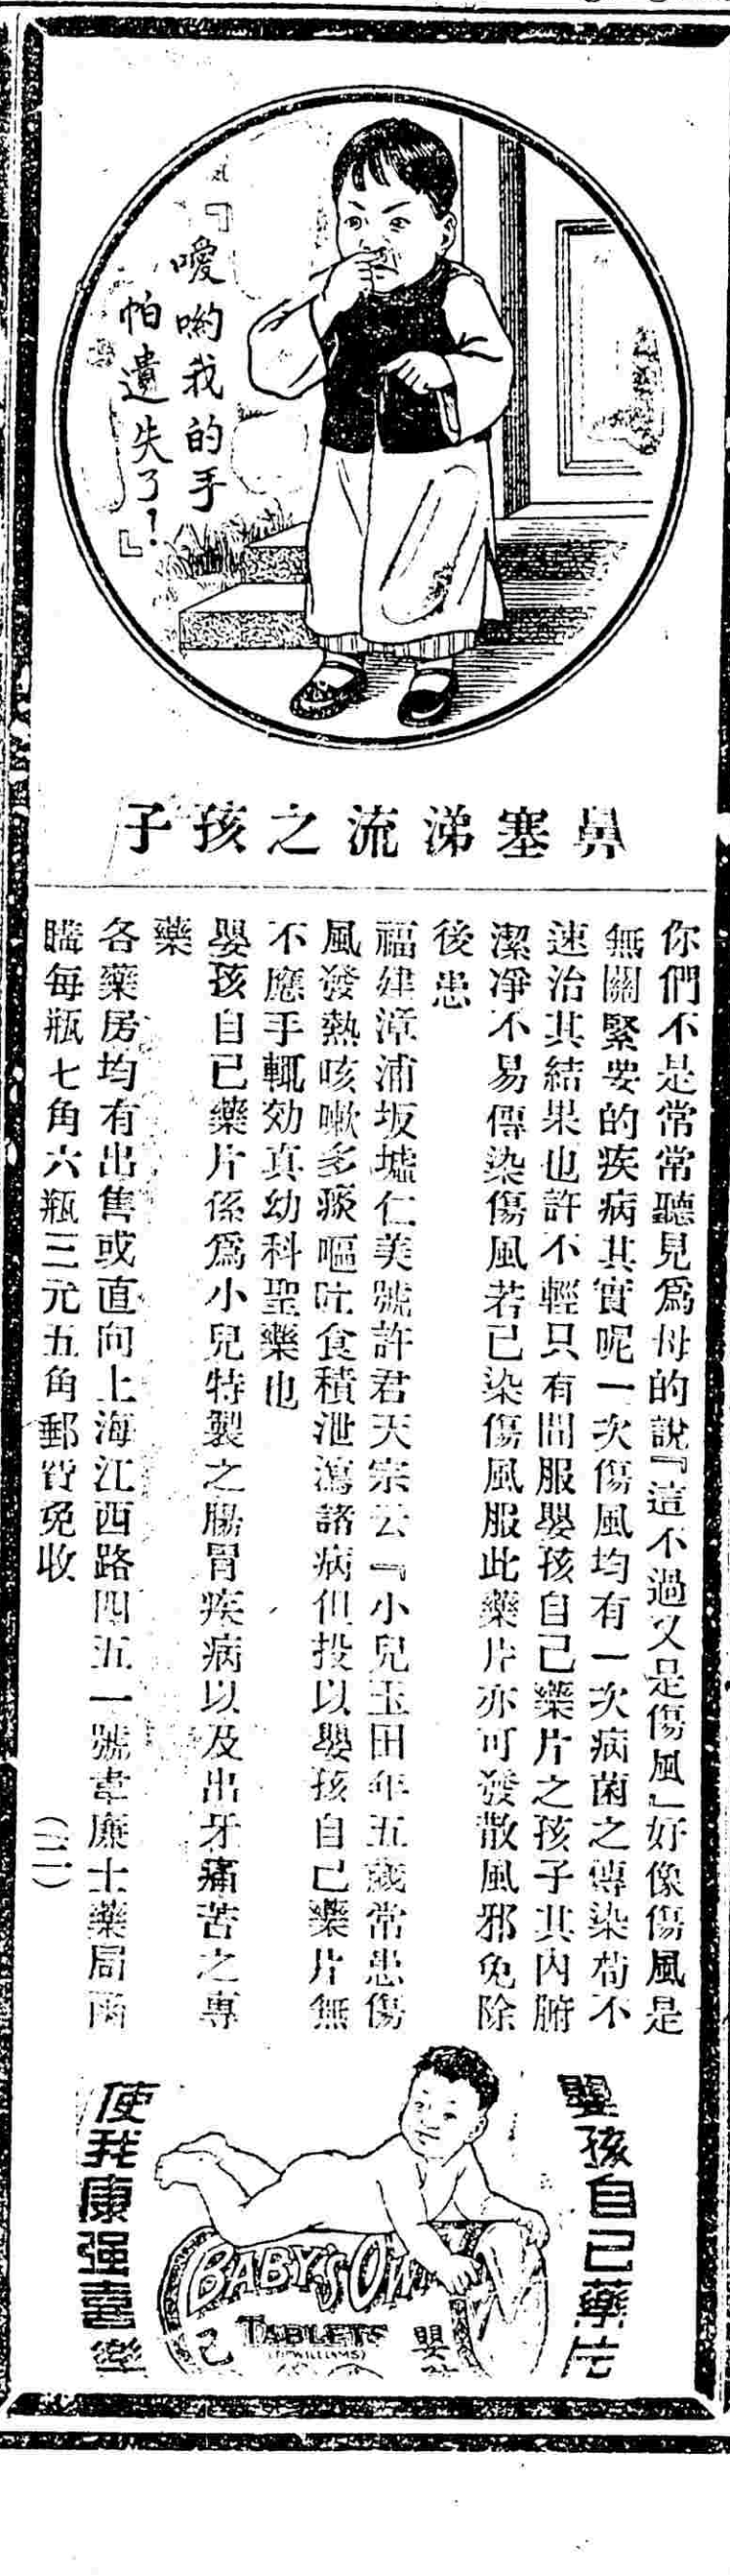 『噯喲我的手
帕遺失了!』
鼻塞涕流之孩子
你們不是常常聽見爲母的說『這不過又是傷風』好像傷風是
無關緊要的疾病其實呢一次傷風均有一次病菌之傳染苟不
速治其結果也許不輕只有間服嬰孩自己藥片之孩子其內腑
潔淨不易傳染傷風若已染傷風服此藥片亦可發散風邪免除
後患
福建漳浦坂墟仁美號許君天宗云『小兒玉田年五歲常患傷
風發熱咳嗽多痰嘔吐食積泄瀉諸病但投以嬰孩自己藥片無
不應手輒効真幼科聖藥也
嬰孩自已藥片係爲小兒特製之腸胃疾病以及出牙痛苦之專
藥
各藥房均有出售或直向上海江西路四五一號韋廉士藥局函
購每瓶七角六瓶三元五角郵費免收
(二)
嬰孩自己藥片
BABY'S OWN
TABLETS
(Dr WILLIAMS)
嬰
己
使我康强喜樂